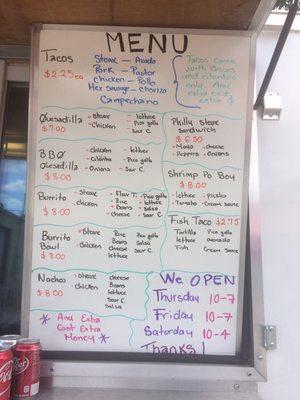 MENU
Tacos
$2.25ea
Steak - Asada
Pork - Pastor
chicken - Pollo
Hex Sausage - Chorizo
Campechano
Tacos come
with onions
and cilantro
only. Any
extra cost
extra $
Quesadilla
$7.00
- Steak
- chicken
- lettuce
- Pico gallo
- Sour C.
Philly Steak
Sandwich
$6.50
- Mayo - cheese
- Peppers - Onions
BBQ
Quesadilla
$8.00
- chicken
- Cilantro
- Onions
- lettuce
- Pico gallo
- Sour C.
Shrimp Po Boy
$8.00
- lettuce - Pickles
- Tomato - Cream Sauce
Burrito
$8.00
- Steak
- chicken
- Flour T.
- Rice
- Beans
- cheese
- Pico gallo
- lettuce
- Salsa
- Sour C.
Fish Taco $2.75
Tortilla Pico gallo
lettuce avocado
Fish Cream Sauce
Burrito
Bowl
$8.00
- Steak
- chicken
Rice
Beans
cheese
lettuce
Pico gallo
Salsa
Sour C.
Nachos
$8.00
- Steak
- chicken
cheese
Beans
lettuce
Sour C.
Salsa
We OPEN
Thursday 10-7
Friday 10-7
Saturday 10-4
Thanks!
* Any Extra
Cost Extra
Money *